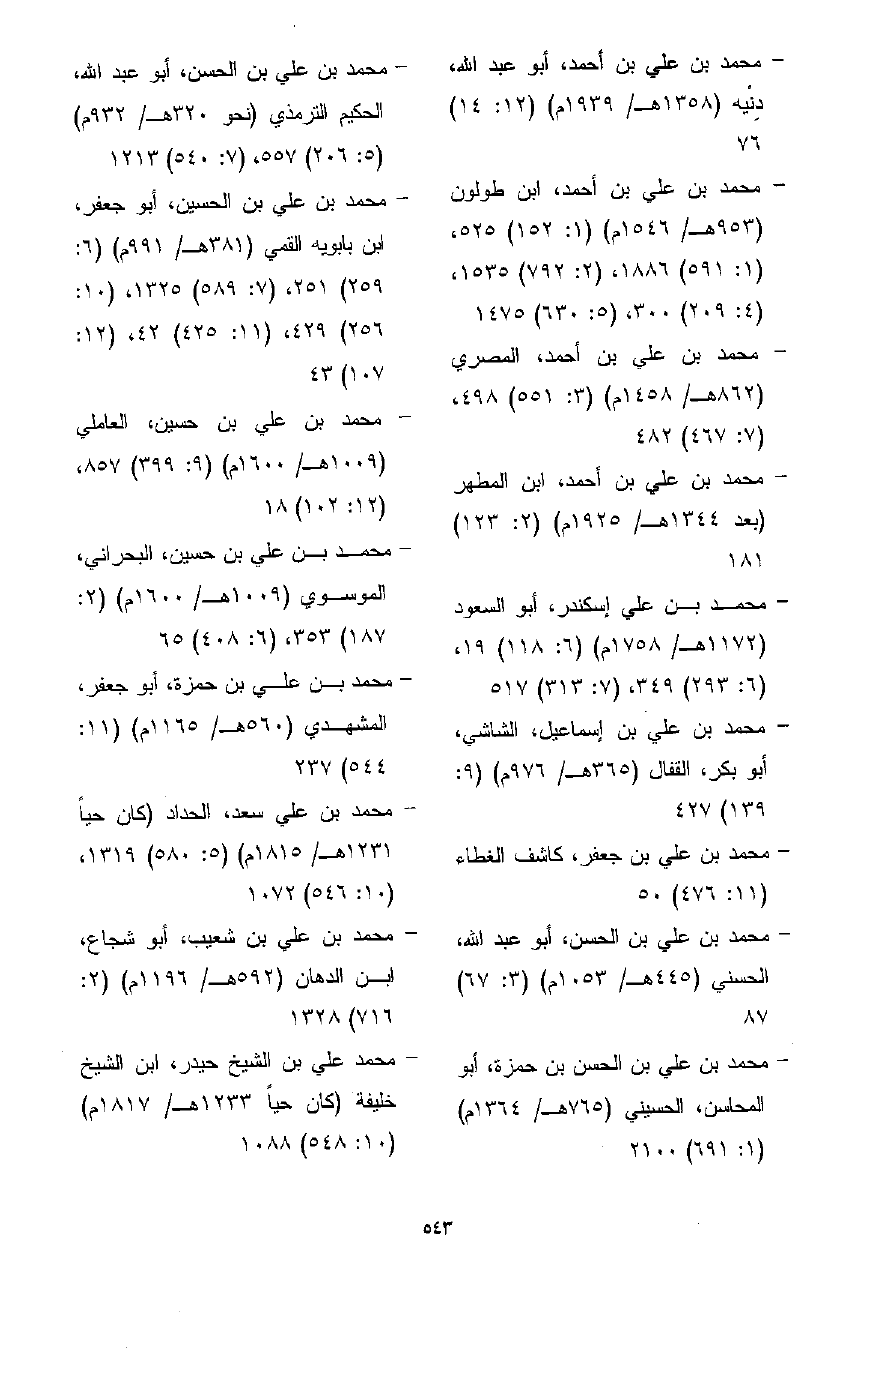 - محمد بن علي بن أحمد، أبو عبد الله،
دِنْيه (١٣٥٨هـ/ ١٩٣٩م) (١٢: ١٤)
٧٦
- محمد بن علي بن أحمد، ابن طولون
(٩٥٣هـ/ ١٥٤٦م) (١: ١٥٢) ٥٢٥،
(١: ٥٩١) ١٨٨٦، (٢: ٧٩٢) ١٥٣٥،
(٤: ٢٠٩) ٣٠٠، (٥: ٦٣٠) ١٤٧٥
- محمد بن علي بن أحمد، المصري
(٨٦٢هـ/ ١٤٥٨م) (٣: ٥٥١) ٤٩٨،
(٧: ٤٦٧) ٤٨٢
- محمد بن علي بن أحمد، ابن المطهر
(بعد ١٣٤٤هـ/ ١٩٢٥م) (٢: ١٢٣)
١٨١
- محمد بن علي إسكندر، أبو السعود
(١١٧٢هـ/ ١٧٥٨م) (٦: ١١٨) ١٩،
(٦: ٢٩٣) ٣٤٩، (٧: ٣١٣) ٥١٧
- محمد بن علي بن إسماعيل، الشاشي،
أبو بكر، القفال (٣٦٥هـ/ ٩٧٦م) (٩:
١٣٩) ٤٢٧
- محمد بن علي بن جعفر، كاشف الغطاء
(١١: ٤٧٦) ٥٠
- محمد بن علي بن الحسن، أبو عبد الله،
الحسني (٤٤٥هـ/ ١٠٥٣م) (٣: ٦٧)
٨٧
- محمد بن علي بن الحسن بن حمزة، أبو
المحاسن، الحسيني (٧٦٥هـ/ ١٣٦٤م)
(١: ٦٩١) ٢١٠٠
- محمد بن علي بن الحسن، أبو عبد الله،
الحكيم الترمذي (نحو ٣٢٠هـ/ ٩٣٢م)
(٥: ٢٠٦) ٥٥٧، (٧: ٥٤٠) ١٢١٣
- محمد بن علي بن الحسين، أبو جعفر،
ابن بابويه القمي (٣٨١هـ/ ٩٩١م) (٦:
٢٥٩) ٢٥١، (٧: ٥٨٩) ١٣٢٥، (١٠:
٢٥٦) ٤٢٩، (١١: ٤٢٥) ٤٢، (١٢:
١٠٧) ٤٣
- محمد بن علي بن حسين، العاملي
(١٠٠٩هـ/ ١٦٠٠م) (٩: ٣٩٩) ٨٥٧،
(١٢: ١٠٢) ١٨
- محمد بن علي بن حسين، البحراني،
الموسوي (١٠٠٩هـ/ ١٦٠٠م) (٢:
١٨٧) ٣٥٣، (٦: ٤٠٨) ٦٥
- محمد بن علي بن حمزة، أبو جعفر،
المشهدي (٥٦٠هـ/ ١١٦٥م) (١١:
٥٤٤) ٢٣٧
- محمد بن علي سعد، الحداد (كان حياً
١٢٣١هـ/ ١٨١٥م) (٥: ٥٨٠) ١٣١٩،
(١٠: ٥٤٦) ١٠٧٢
- محمد بن علي بن شعيب، أبو شجاع،
ابن الدهان (٥٩٢هـ/ ١١٩٦م) (٢:
٧١٦) ١٣٢٨
- محمد علي بن الشيخ حيدر، ابن الشيخ
خليفة (كان حياً ١٢٣٣هـ/ ١٨١٧م)
(١٠: ٥٤٨) ١٠٨٨
٥٤٣